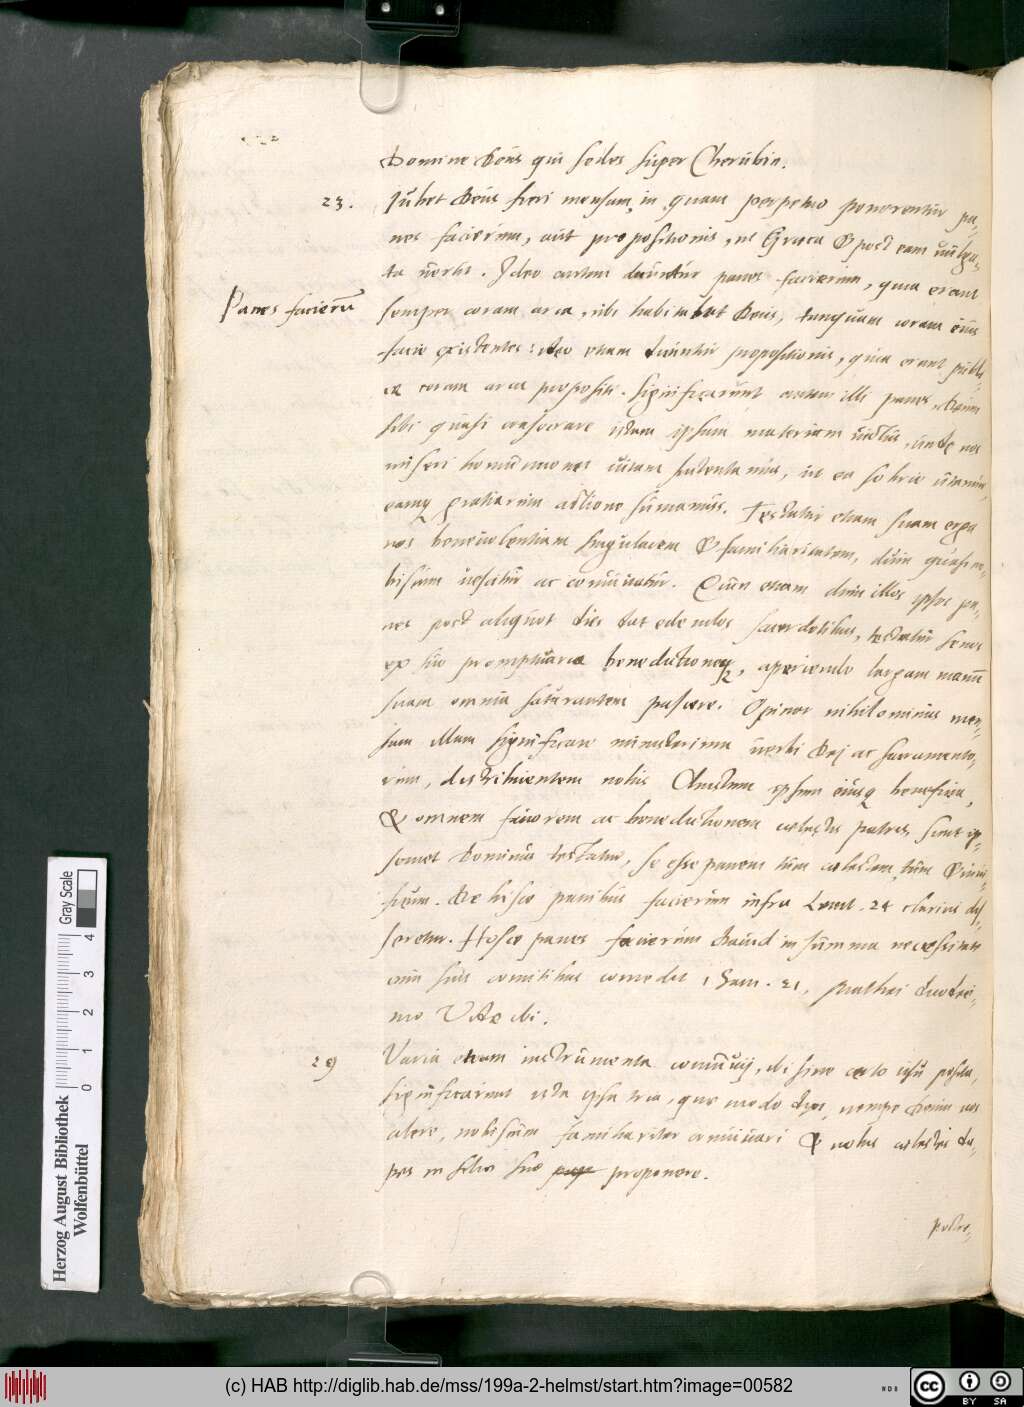 Domine Deus qui sedes super Cherubin.
23. Jubet Deus fieri mensam, in quam perpetuo ponerentur pa-
nes facierum, aut propositionis, ut Graeca & post eam vulga-
ta vertit. Ideo autem dicuntur panes facierum, quia erant
Panes facierũ
semper coram arca, ubi habitabat Deus, tanquam coram eius
facie existentes: ideo etiam dicuntur propositionis, quia erant publi-
ce coram arca propositi. Significarunt autem illi panes, Deum
sibi quasi consecrare istam ipsam materiam victus, unde nos
miseri homunciones vitam sustentamus, ut ea sobrie utamur,
eamq gratiarum actione sumamus. Testatur etiam suam erga
nos benevolentiam singularem & familiaritatem, dum quasi no-
biscum vescitur ac convivatur. Cum etiam dum illos ipsos pa-
nes post aliquot dies dat edendos sacerdotibus, testatur se nos
ex suo promptuario benedictioneq, aperiendo largam manũ
suam omnia saturantem pascere. Opinor nihilominus men-
sam illam significare ministerium verbi Dei ac sacramento-
rum, distribuentem nobis Christum ipsum eiusq beneficia,
& omnem favorem ac benedictionem coelestis patris, sicut ip-
semet Dominus testatur, se esse panem tum coelestem, tum vivi-
ficum. De hisce panibus facierum infra Levit. 24 clarius dis-
seretur. Hosce panes facierum David in summa necessitate
cum suis comitibus comedit 1 Sam. 21, Mathei duodeci-
mo Vide ibi.
29 Varia etiam instrumenta convivij, ibi sine certo usu posita,
significarunt ista ipsa tria, quae modo dixi, nempe Deum nos
alere, nobiscum familiariter convivari & nobis coelestes da-
pes in filio suo proponere.
Postre-
Herzog August Bibliothek
Wolfenbüttel
0 1 2 3 4
Gray Scale
(c) HAB http://diglib.hab.de/mss/199a-2-helmst/start.htm?image=00582
cc BY SA